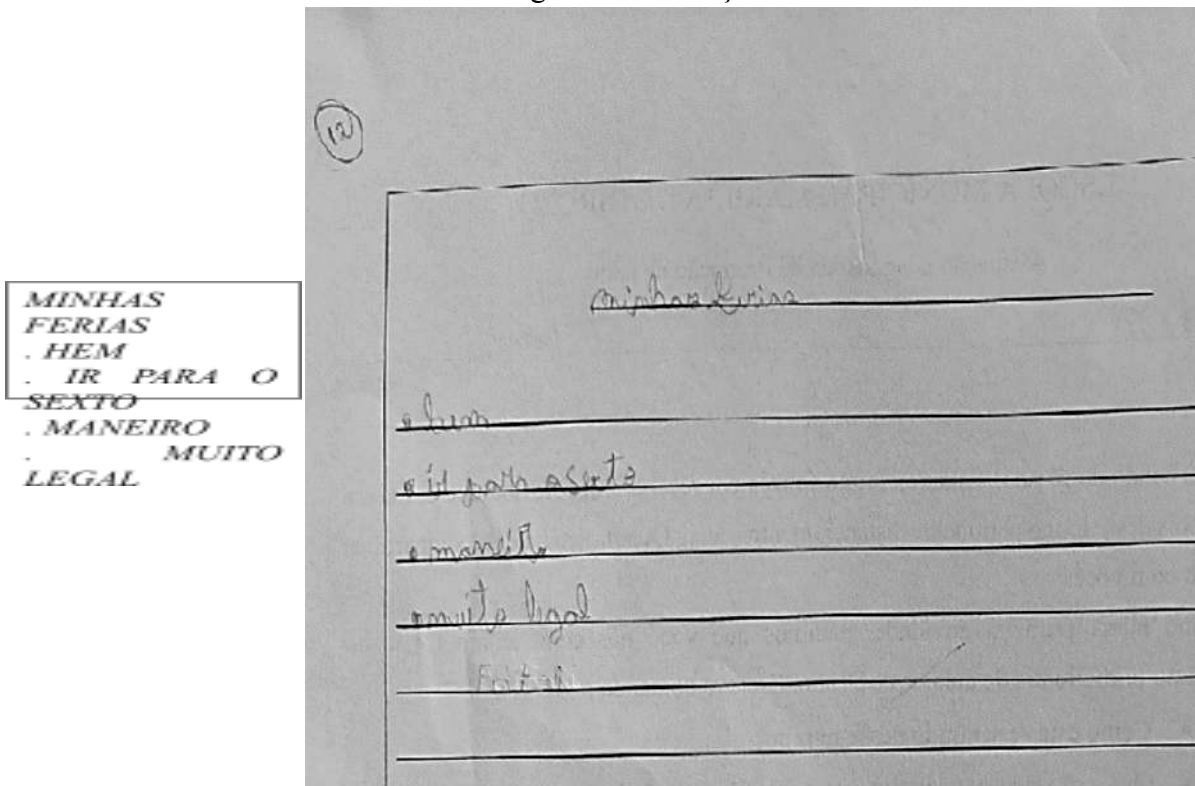 MINHAS
FERIAS
. HEM
. IR PARA O
SEXTO
. MANEIRO
. MUITO
LEGAL
12
minhas ferias
• hem
• ir para o sexto
• maneiro
• muito legal